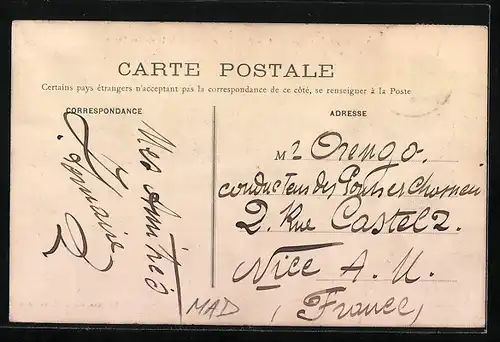 CARTE POSTALE
Certains pays étrangers n'acceptant pas la correspondance de ce côté, se renseigner à la Poste
CORRESPONDANCE
Mes Amitiés
ADRESSE
Mr Orengo.
conducteur des Ponts et Chaussées
2. Rue Castel 2.
Nice A. M.
(France)
MAD